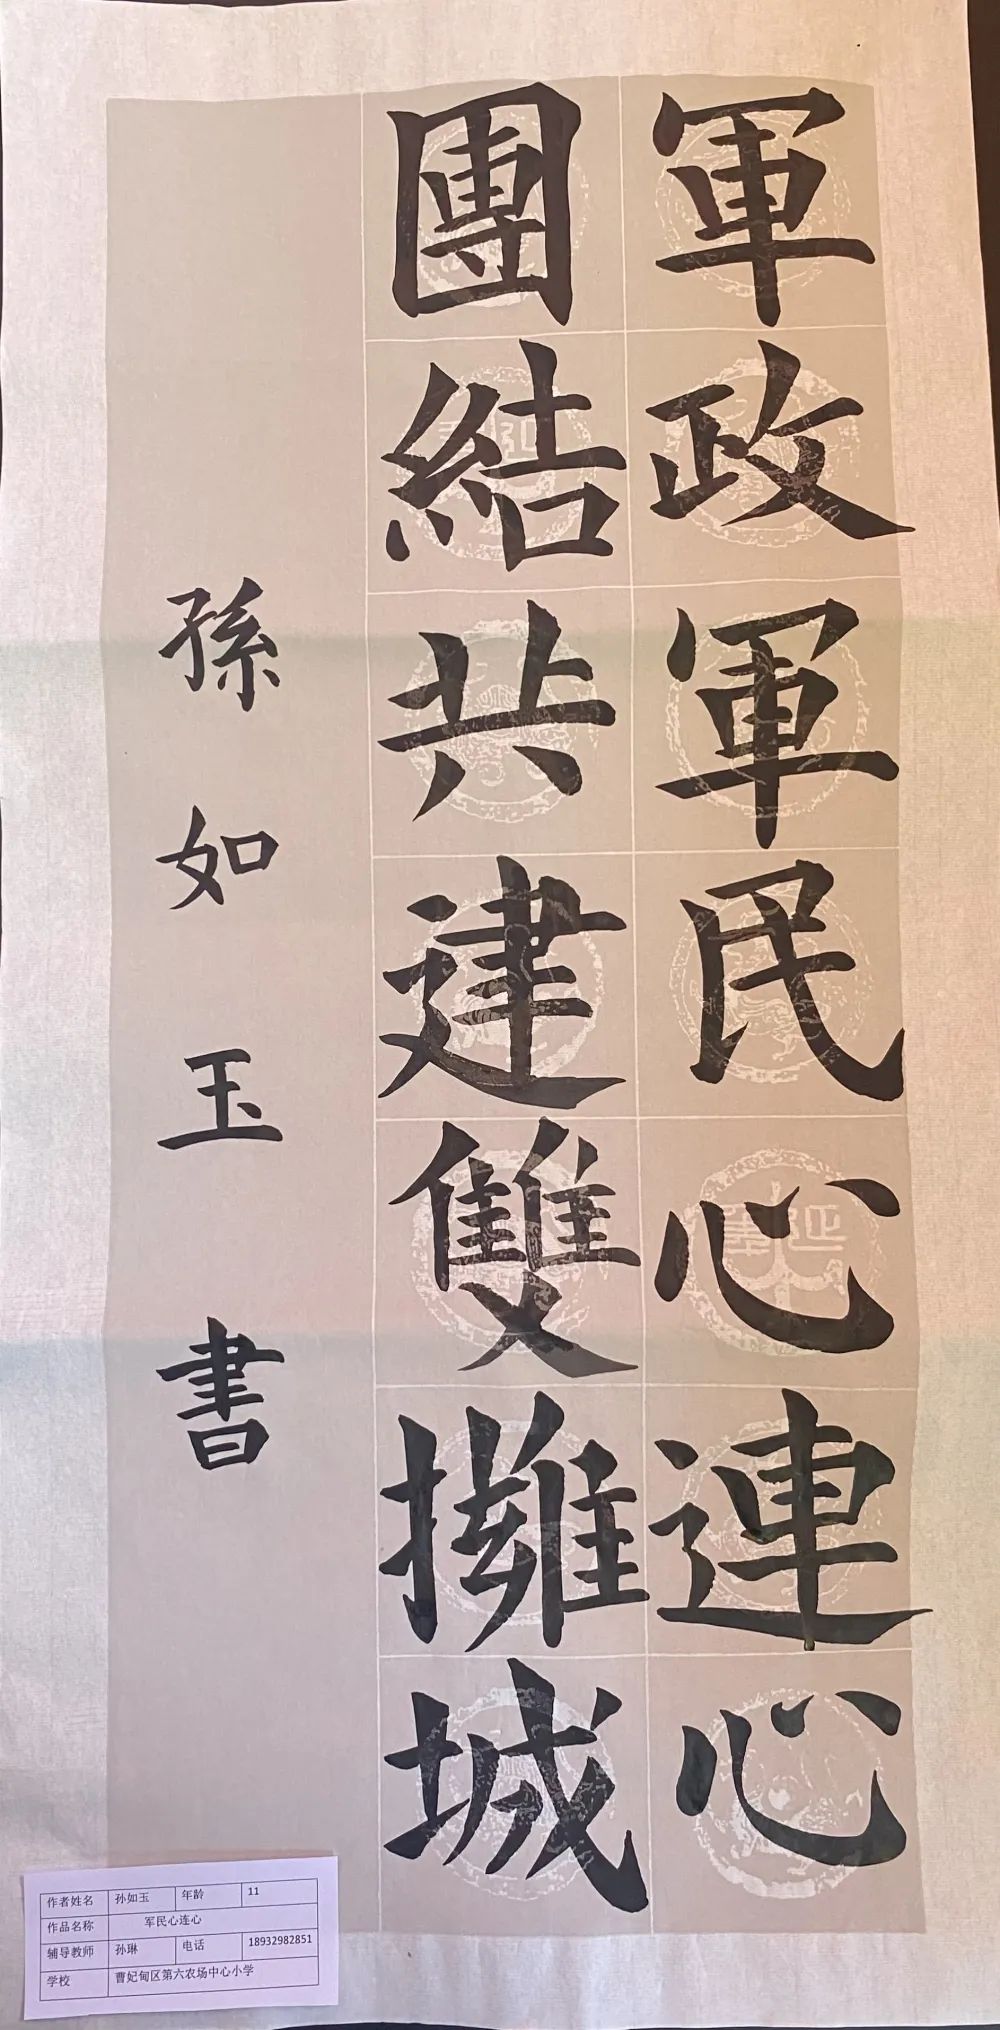 軍政軍民心連心
團結共建雙擁城
孫如玉書
作者姓名 孙如玉 年龄 11
作品名称 军民心连心
辅导教师 孙琳 电话 18932982851
学校 曹妃甸区第六农场中心小学